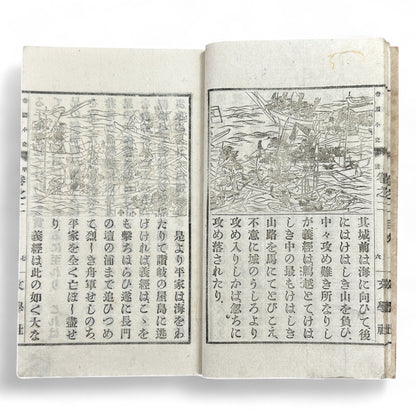 帝國小史
六
其城前は海に向ひて後
にはけはしき山を負ひ
中々攻め難き所なりし
が義經は鵯越とてけは
しき中の最もけはしき
山路を馬にてとびこえ
不意に城のうしろより
攻め入りしかば忽ちに
攻め落されたり、
是より平家は海をわ
たりて讃岐の屋島に逃
げければ義經はこゝを
も擊ちはらひ遂に長門
の壇の浦まで追ひつめ
て烈しき舟軍せしのち、
平家を全く亡ぼし盡せ
り、
義經は此の如く大な
帝國小史
卷之二
七
文學社